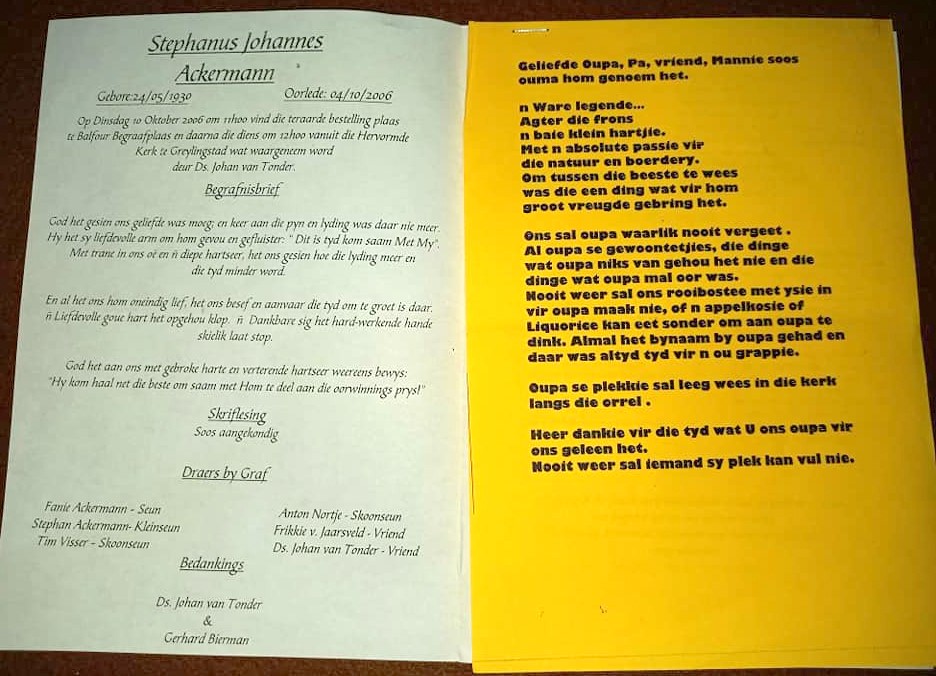 Stephanus Johannes
Ackermann
Gebore:24/05/1930 Oorlede: 04/10/2006
Op Dinsdag 10 Oktober 2006 om 11h00 vind die teraarde bestelling plaas
te Balfour Begraafplaas en daarna die diens om 12h00 vanuit die Hervormde
Kerk te Greylingstad wat waargeneem word
deur Ds. Johan van Tonder.
Begrafnisbrief
God het gesien ons geliefde was moeg; en keer aan die pyn en lyding was daar nie meer.
Hy het sy liefdevolle arm om hom gevou en gefluister: " Dit is tyd kom saam Met My".
Met trane in ons oë en ñ diepe hartseer, het ons gesien hoe die lyding meer en
die tyd minder word.
En al het ons hom oneindig lief, het ons besef en aanvaar die tyd om te groet is daar.
ñ Liefdevolle goue hart het opgehou klop. ñ Dankbare sig het hard-werkende hande
skielik laat stop.
God het aan ons met gebroke harte en verterende hartseer weereens bewys:
"Hy kom haal net die beste om saam met Hom te deel aan die oorwinnings prys!"
Skriflesing
Soos aangekondig
Draers by Graf
Fanie Ackermann - Seun
Stephan Ackermann- Kleinseun
Tim Visser - Skoonseun
Anton Nortje - Skoonseun
Frikkie v. Jaarsveld - Vriend
Ds. Johan van Tonder - Vriend
Bedankings
Ds. Johan van Tonder
&
Gerhard Bierman
Geliefde Oupa, Pa, vriend, Mannie soos
ouma hom genoem het.
n Ware legende...
Agter die frons
n baie klein hartjie.
Met n absolute passie vir
die natuur en boerdery.
Om tussen die beeste te wees
was die een ding wat vir hom
groot vreugde gebring het.
Ons sal oupa waarlik nooit vergeet .
Al oupa se gewoontetjies, die dinge
wat oupa niks van gehou het nie en die
dinge wat oupa mal oor was.
Nooit weer sal ons rooibostee met ysie in
vir oupa maak nie, of n appelkosie of
Liquorice kan eet sonder om aan oupa te
dink. Almal het bynaam by oupa gehad en
daar was altyd tyd vir n ou grappie.
Oupa se plekkie sal leeg wees in die kerk
langs die orrel .
Heer dankie vir die tyd wat U ons oupa vir
ons geleen het.
Nooit weer sal iemand sy plek kan vul nie.